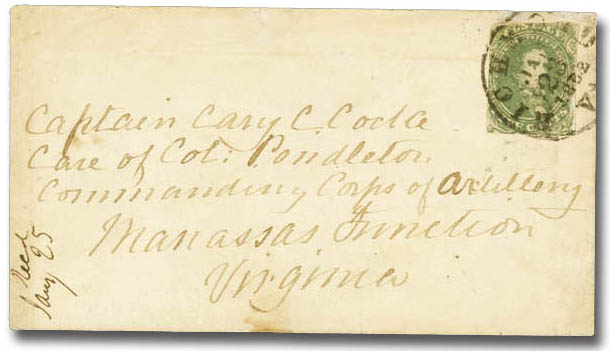 RICHMOND VA.
JAN
1862
Captain Cary C. Cocke
Care of Col: Pendleton
Commanding Corps of Artillery
Manassas Junction
Virginia
Recd
Jany 25